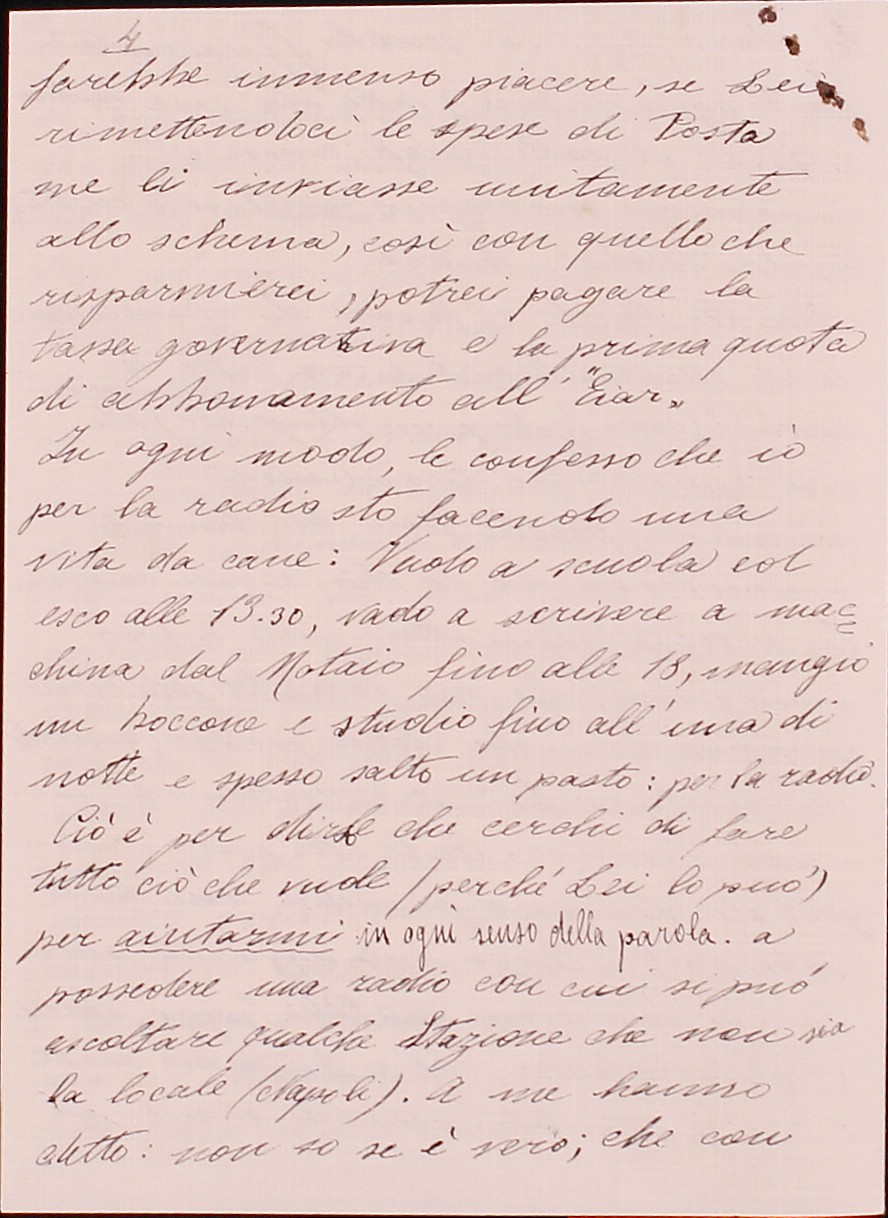 4
farebbe immenso piacere, se Lei
rimettendoci le spese di Posta
me li inviasse unitamente
allo schema, così con quello che
risparmierei, potrei pagare la
tassa governativa e la prima quota
di abbonamento all' "Eiar„
In ogni modo, le confesso che io
per la radio sto facendo una
vita da cane: Vado a scuola ed
esco alle 13.30, vado a scrivere a mac=
china dal Notaio fino alle 18, mangio
un boccone e studio fino all'una di
notte e spesso salto un pasto: per la radio.
Ciò è per dirle che cerchi di fare
tutto ciò che vuole (perché Lei lo può)
per aiutarmi in ogni senso della parola. a
possedere una radio con cui si può
ascoltare qualche Stazione che non sia
la locale (Napoli). A me hanno
detto: non so se è vero; che con